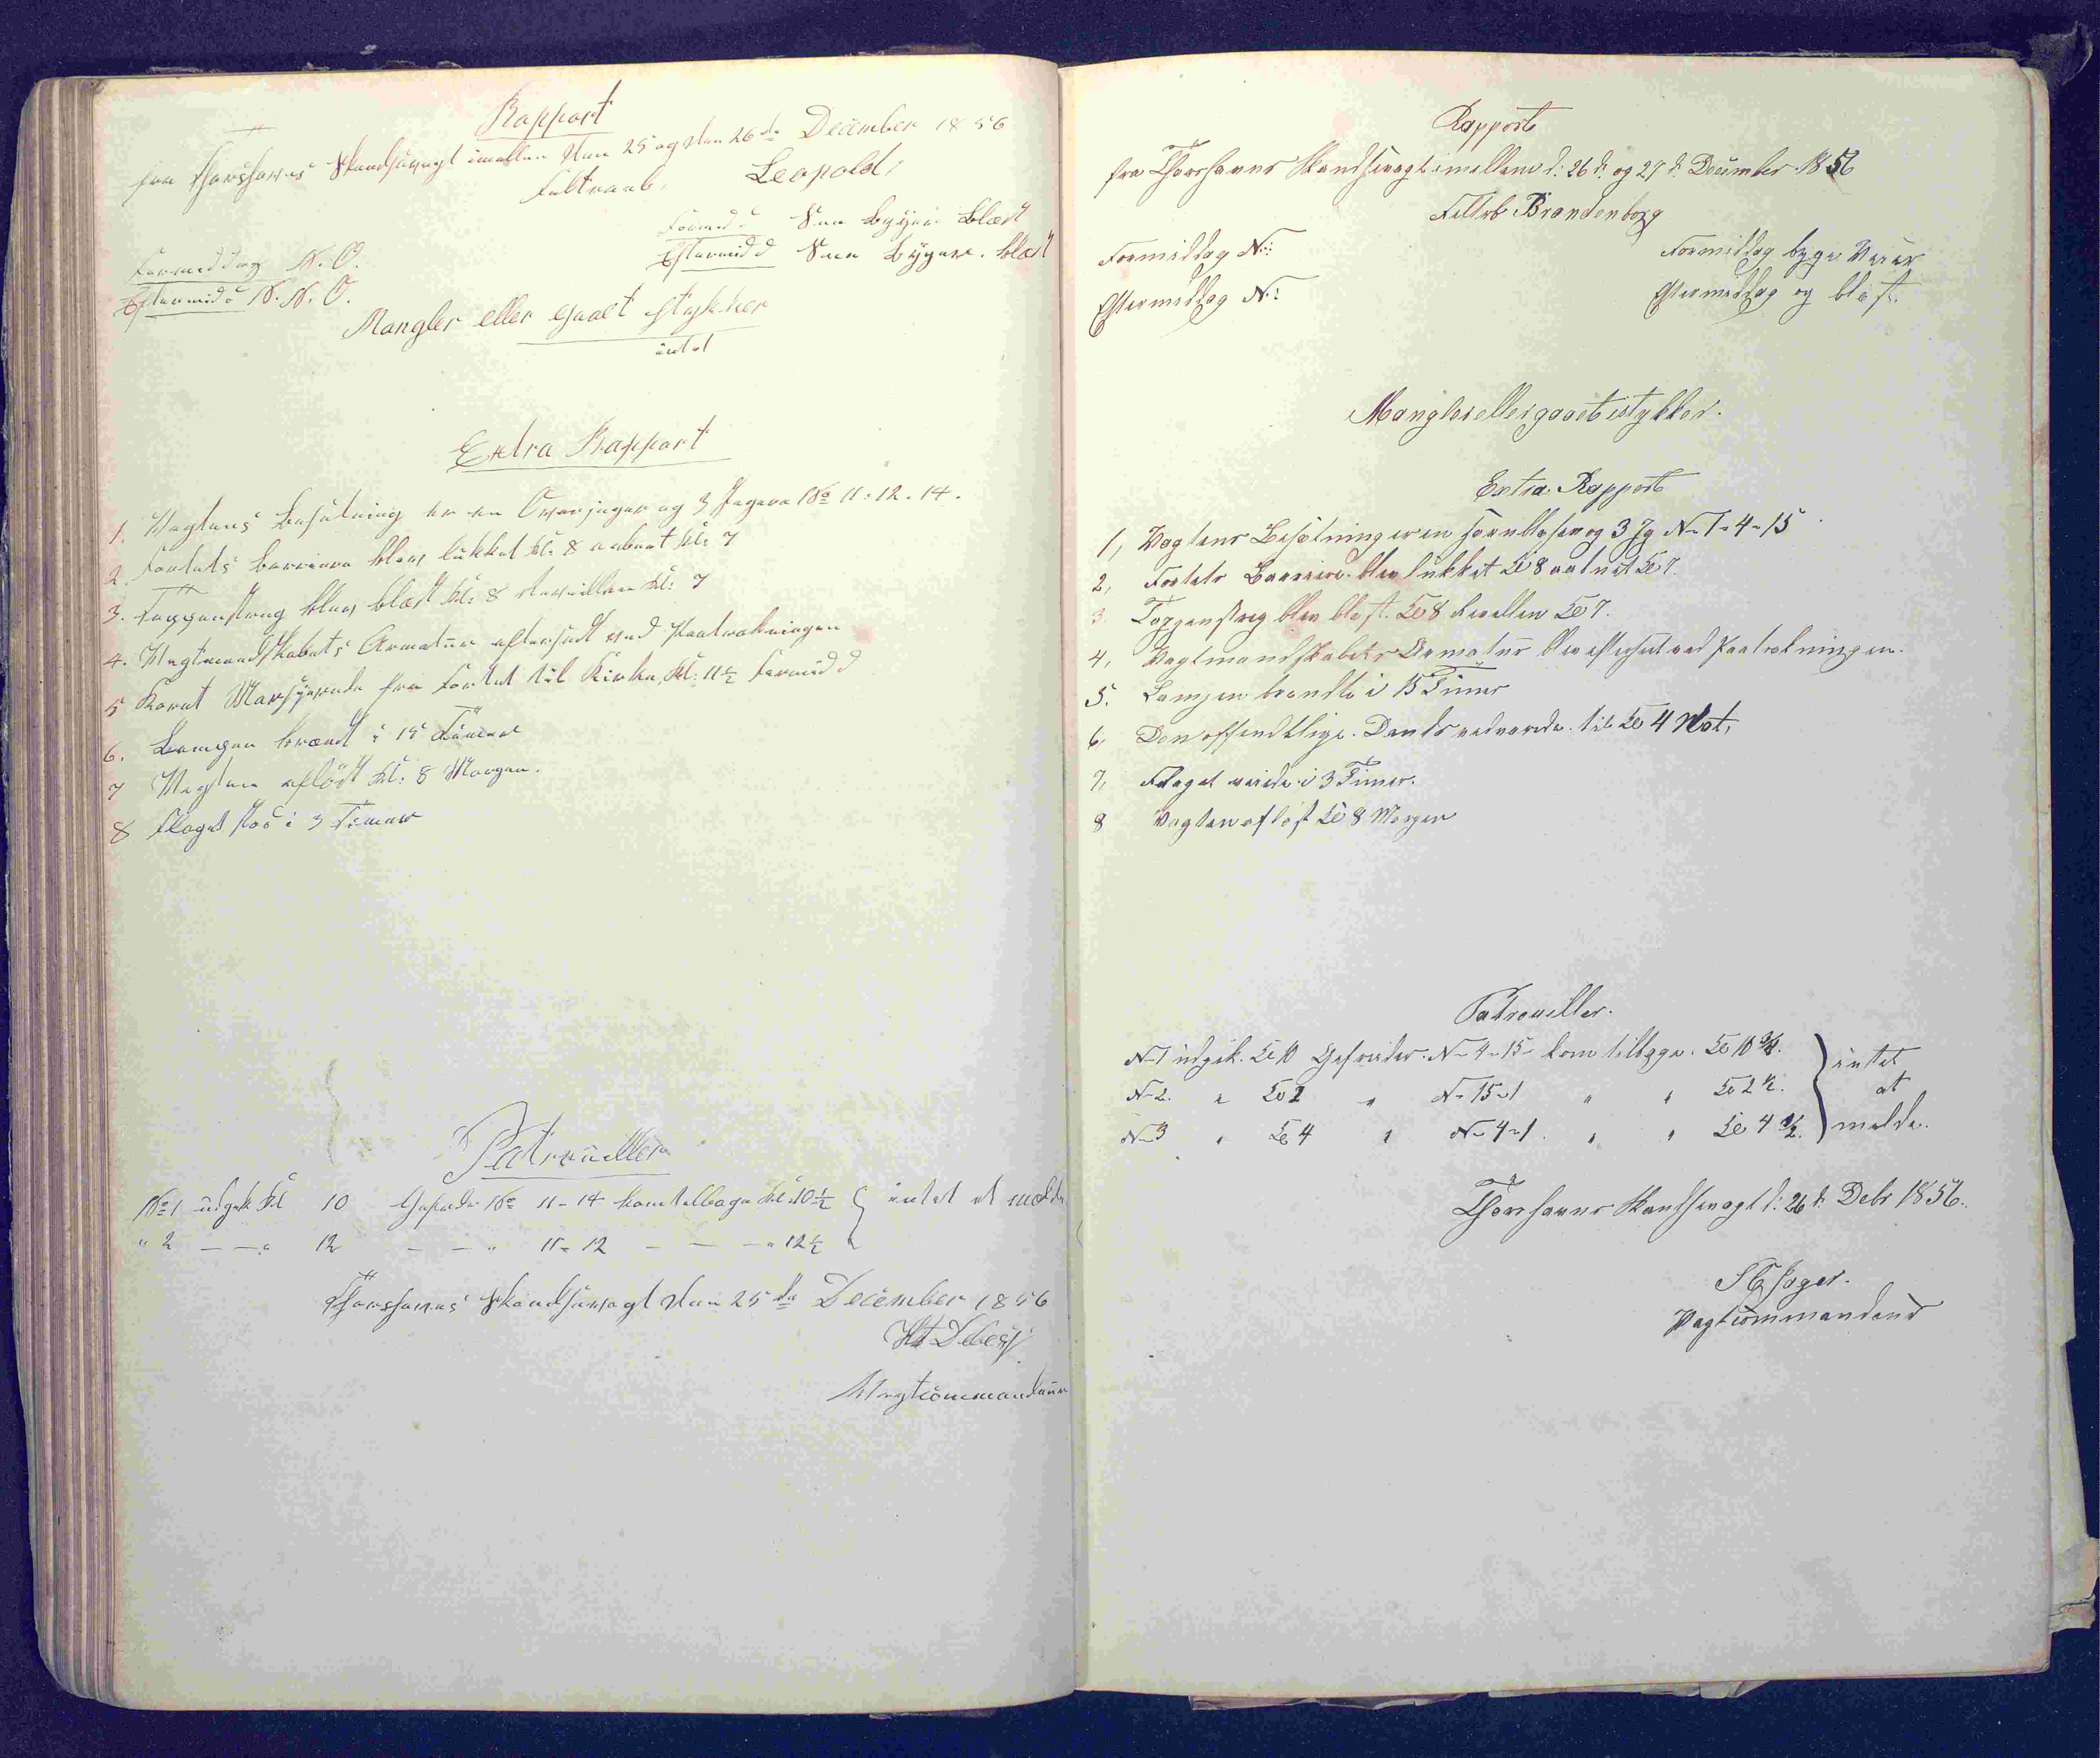 Rapport
fra Thorshavns Skandsevagt imellem den 25 og den 26de December 1856
Feltraab, Leopold,
Formidd Snee Bygger Blæst
Eftermidd Snee Byger. blæst
Formiddag N. O.
Eftermidd N. N. O.
Mangler eller gaaet i stykker
intet
Extra Rapport
1. Vagtens Besætning er en Overjæger og 3 Jægere No 11. 12. 14.
2. Fortets barriere blev lukket kl: 8 aabnet kl: 7
3. Tappenstreg blev blæst kl: 8 Reveillen kl: 7
4. Vagtmandskabets Armatur efterseet ved Paatrækningen
5 Korpset Marsjerede fra Fortet til Kirke, kl: 11½ Formidd
6. Lampen brændt i 15 Timer
7 Vagten afløst kl: 8 Morgen.
8 Flaget stod i 3 Timer
Patrouiller
No 1 udgik kl 10 Gefreder No 11 - 14 kom tilbage kl: 10½ } intet at melde
" 2 — — " 12 — — " 11 - 12 — — — " 12½
Thorshavns Skandsevagt den 25de December 1856
Debess
Vagtcommandeur
Rapport
fra Thorshavns Skandsevagt imellem d: 26 d: og 27 d: December 1856
Feltrb Brandenborg
Formiddag N: Formiddag byge Veier
Eftermiddag N: Eftermiddag og blæst.
Mangler eller gaaet i stykker.
Extra Rapport
1, Vagtens Besætning er en Hornblæser og 3 Jg N- 1- 4- 15
2, Fortets Barriere blev lukket Kl 8 aabnet Kl 7.
3. Tappenstreg blev blæst. Kl 8 Revellen Kl 7.
4, Vagtmandskabets Armatur blev efterseet ved Paatrækningen.
5. Lampen brændte i 15 Timer
6, Den offendtlige Dands vedvarede til Kl 4 Nat,
7, Flaget veiede i 3 Timer.
8 Vagten afløst Kl 8 Morgen
Patrouiller.
N-1 udgik. Kl 10 Gefreider. N- 4- 15- kom tilbage. Kl 10½. } intet
N-2. " Kl 2 " N- 15-1 " " Kl 2½. at
N-3 " Kl 4 " N- 4-1. " " Kl 4½. melde.
Thorshavns Skandsevagt d: 26 d: Debr 1856.
Jæger.
Vagtcommandeur